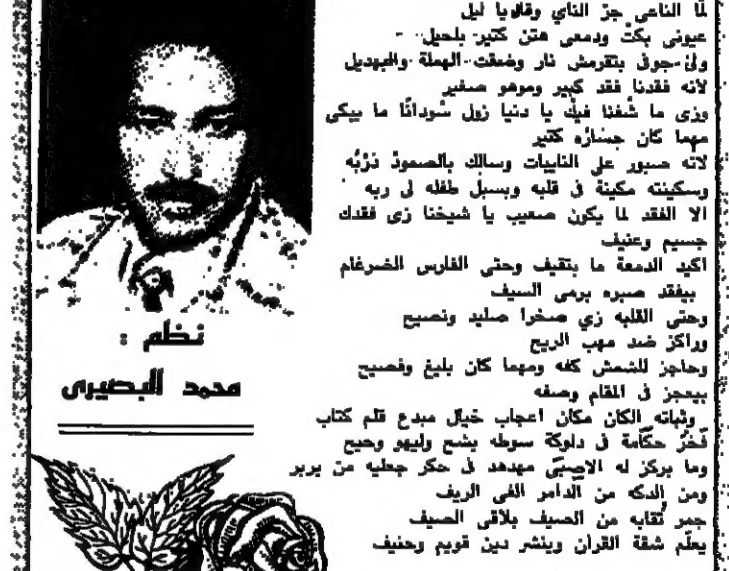 لمّا الناعى جرّ الناي وقال يا ليل
عيونى بكتْ ودمعى هتن كتير بلحيل
ولىْ جوفى بتقرمش نار وضقت الهملة والبهديل
لانه فقدنا فقد كبير وموهو صغير
وزى ما شُفنا فيكْ يا دنيا زول سُودانًا ما بيبكى
مهما كان جسارُه كتير
لانه صبور على النايبات وسالك بالصمودْ دَرْبُه
وسكينته مكينة فى قلبه وبسبل طفله لى ربه
الا الفقد لما يكون صعيب يا شيخنا زى فقدك
جسيم وعنيف
اكيد الدمعة ما بتقيف وحتى الفارس الضرغام
بيفقد صبره يرمى السيف
وحتى القلبه زي صخرا صليد ونصيح
وراكز ضد مهب الريح
وحاجز للشمش كفه ومهما كان بليغ وفصيح
بيعجز فى المقام وصفه
وثباته الكان مكان اعجاب خيال مبدع قلم كتاب
فَخَرُ حكّامة فى دلوكة سوطه يشح وليهو وحيح
وما بركز له الاصبَّى مهدهد فى حكر جعليه من بربر
ومن الدكه من الدامر الفى الريف
جمر تُقابه من الصيف يلاقى الصيف
يعلّم شقة القران وينشر دين قويم وحنيف
نظم :
محمد البصيرى